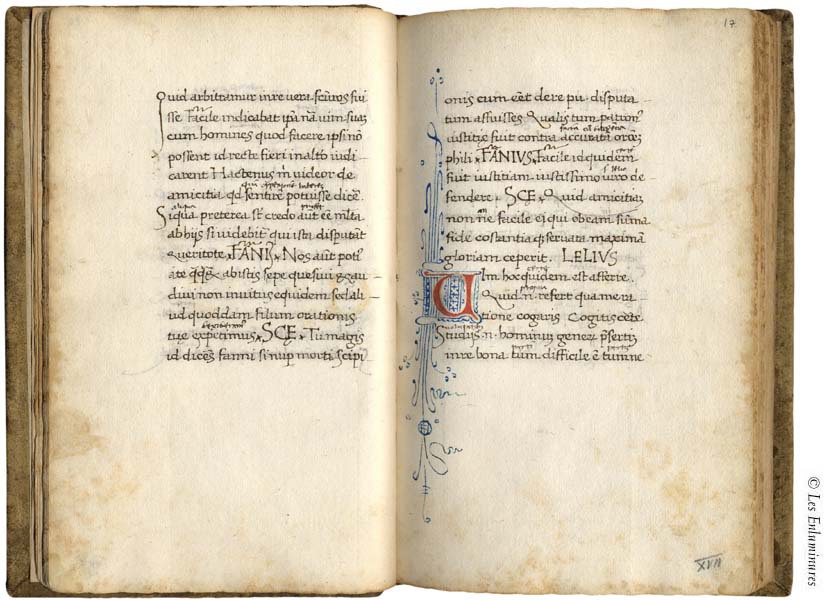 Quid arbitramur in re vera. scuros fui
sse Facile indicabat ipa nã vim suaz
cum homines quod facere ipsi nõ
possent id recte fieri in alto iudi
carent Hactenus m videor de
amicitia qd sentire potuisse dicẽ.
Siqua preterea st credo aut eẽ mlta
ab hijs si videbit qui ista disputãt
queritote. FANI. Nos aut poti
ate
abistis sepe quesivi & gau
divi non invitus equidem sed ali
ud quoddam filum orationis
tue expetimus. SCE. Tu magis
id dices fanni si nup morti scipi
17
onis cum eet de re pu. disputa
tum afuisses Qualis tum patron
iustitie fuit contra accurata orõez
phili. FANIVS. Facile id quidem
fuit iustitiam iustissimo viro de
fendere. SCE. Quid amicitiaz
nonne facile ei qui ob eam suma
fide costantia q servata maximã
gloriam ceperit. LELIVS
Vim hoc quidem est afferre.
Quid n refert qua me ra
tione cogatis Cogitis cete
Studiis n hominuz generz pserti
in re bona tum difficile ẽ tum ne
XVII
© Les Enluminures